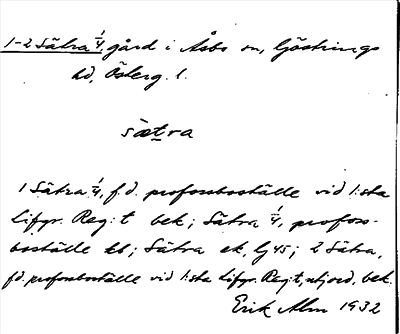 1-2 Sätra 1/4, gård i Åsbo sn, Göstrings
hd, Österg. l.
sætra
1 Sätra 1/4, f.d. profossboställe vid 1:sta
Lifgr. Reg:t bek; Sätra 1/4, profoss-
boställe kb; Sätra ek, Gj 45; 2 Sätra,
f.d. profossboställe vid 1:sta Lifgr. Reg:t, utjord, bek.
Erik Alm 1932